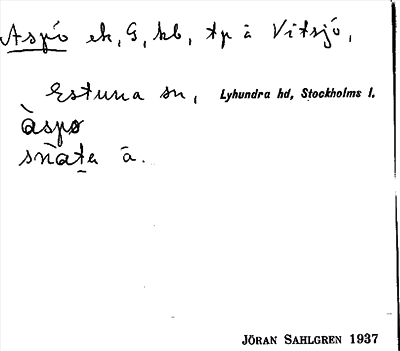 Aspö ek, G, kb, tp å Vitsjö,
Estuna sn, Lyhundra hd, Stockholms l.
àspø
snàta å.
JÖRAN SAHLGREN 1937